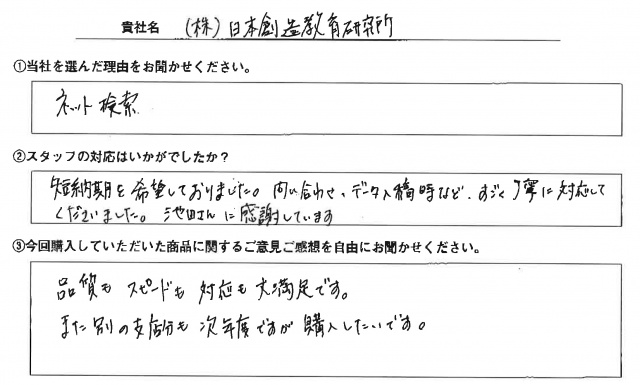 貴社名 (株)日本創造教育研究所
①当社を選んだ理由をお聞かせください。
ネット検索
②スタッフの対応はいかがでしたか?
短納期を希望しておりました。問い合わせ、データ入稿時など、すごく丁寧に対応して
くださいました。池田さんに感謝しています
③今回購入していただいた商品に関するご意見ご感想を自由にお聞かせください。
品質もスピードも対応も大満足です。
また別の支店分も次年度ですが購入したいです。